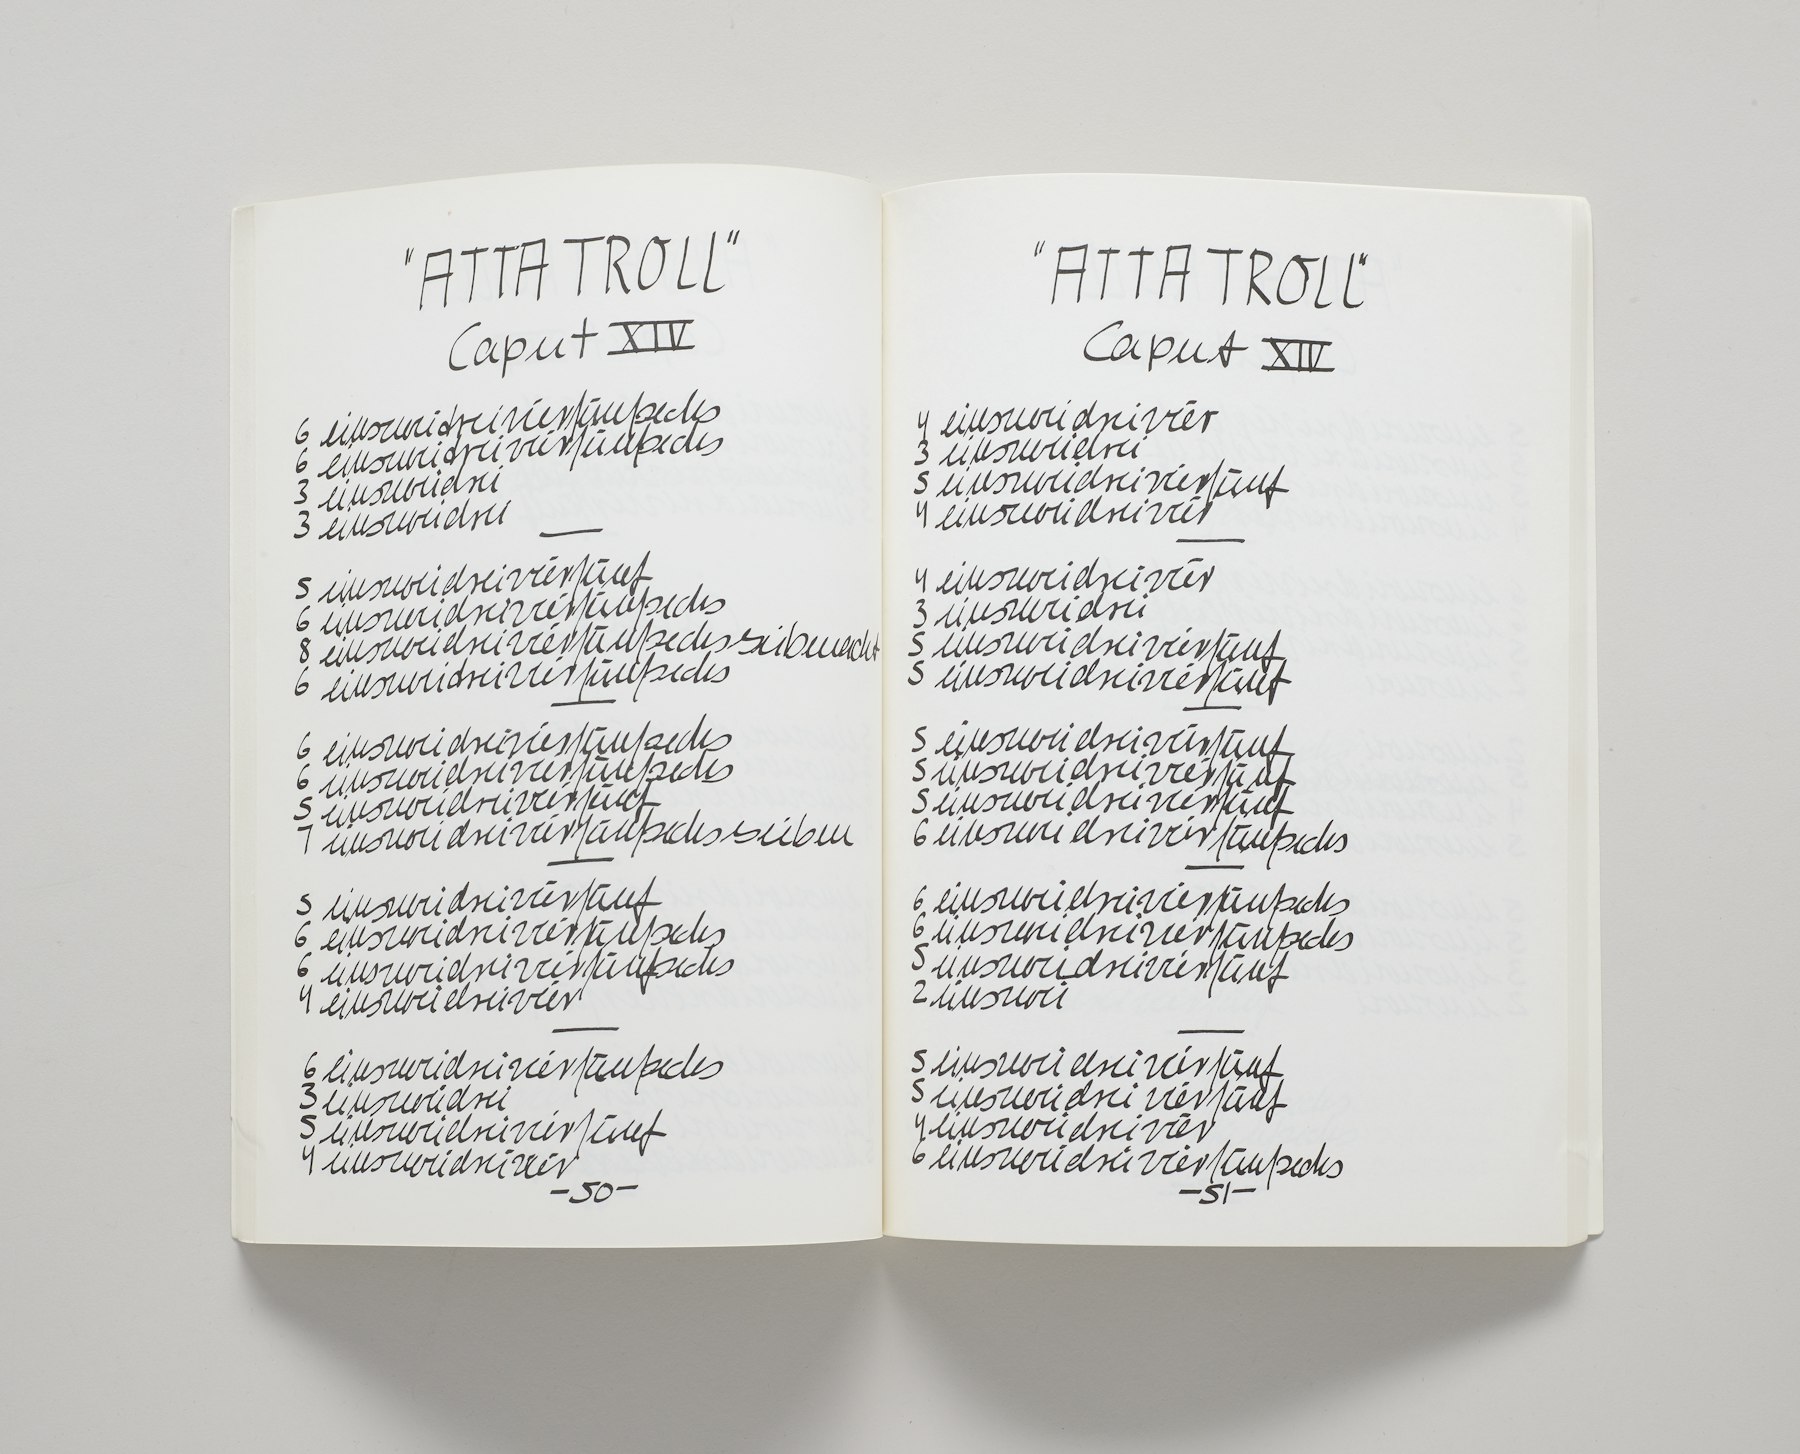 "ATTA TROLL"
Caput XIV
6 einszweidreivierfünfsechs
6 einszweidreivierfünfsechs
3 einszweidrei
3 einszweidrei
—
5 einszweidreivierfünf
6 einszweidreivierfünfsechs
8 einszweidreivierfünfsechssiebenacht
6 einszweidreivierfünfsechs
—
6 einszweidreivierfünfsechs
6 einszweidreivierfünfsechs
5 einszweidreivierfünf
7 einszweidreivierfünfsechssieben
—
5 einszweidreivierfünf
6 einszweidreivierfünfsechs
6 einszweidreivierfünfsechs
4 einszweidreivier
—
6 einszweidreivierfünfsechs
3 einszweidrei
5 einszweidreivierfünf
4 einszweidreivier
-50-
"ATTA TROLL"
Caput XIV
4 einszweidreivier
3 einszweidrei
5 einszweidreivierfünf
4 einszweidreivier
—
4 einszweidreivier
3 einszweidrei
5 einszweidreivierfünf
5 einszweidreivierfünf
—
5 einszweidreivierfünf
5 einszweidreivierfünf
5 einszweidreivierfünf
6 einszweidreivierfünfsechs
—
6 einszweidreivierfünfsechs
6 einszweidreivierfünfsechs
5 einszweidreivierfünf
2 einszwei
—
5 einszweidreivierfünf
5 einszweidreivierfünf
4 einszweidreivier
6 einszweidreivierfünfsechs
-51-